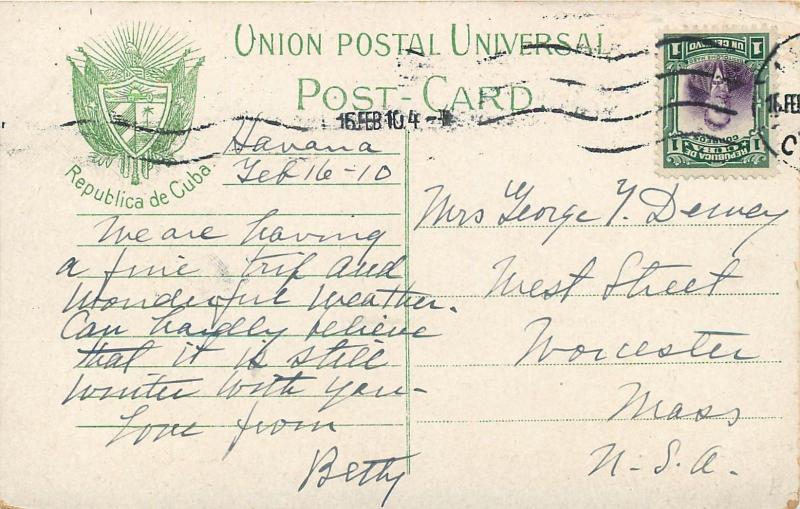 UNION POSTAL UNIVERSAL
POST-CARD
Republica de Cuba.
16.FEB 10. 4 -
16.FE
C
1 1
UN CENTAVO
REPUBLICA DE
CUBA
CORREOS
1 1
Havana
Feb 16-10
We are having
a fine trip and
wonderful weather.
Can hardly believe
that it is still
winter with you-
Love from
Betty
Mrs George T. Dewey
West Street
Worcester
Mass
U.S.A.